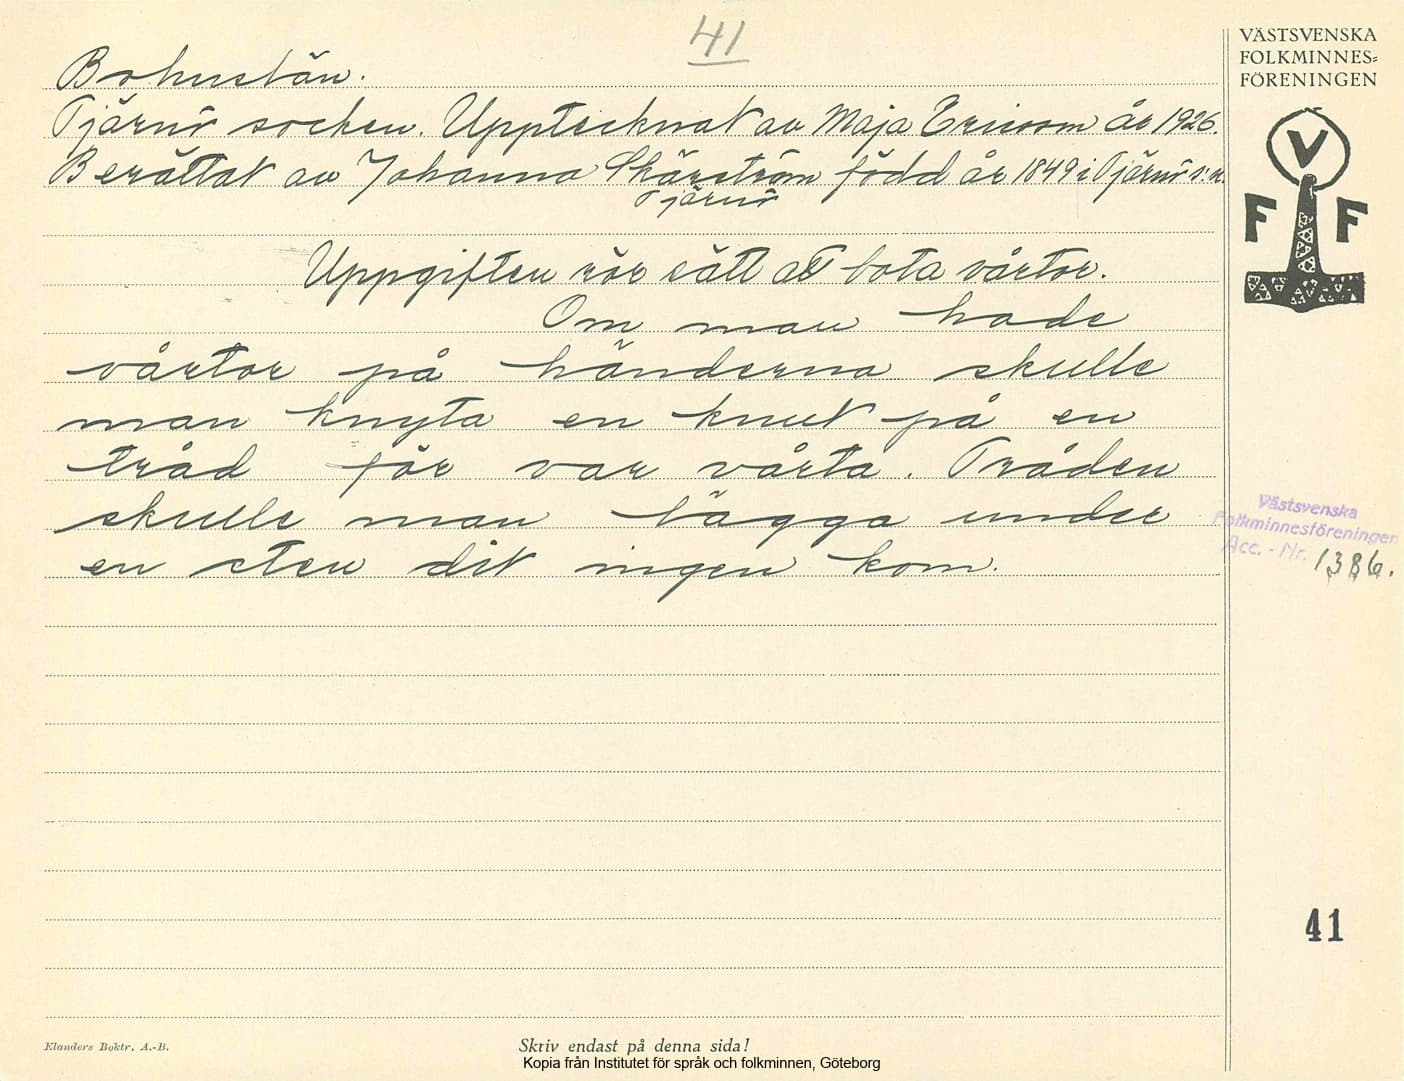 41
Bohuslän.
Tjärnö socken. Upptecknat av Maja Ericson år 1926.
Berättat av Johanna Skärström född år 1849 i Tjärnö s:n.
Tjärnö
Uppgiften rör sätt att bota vårtor.
Om man hade
vårtor på händerna skulle
man knyta en knut på en
tråd för var vårta. Tråden
skulle man lägga under
en sten dit ingen kom.
VÄSTSVENSKA
FOLKMINNES=
FÖRENINGEN
V
F F
Västsvenska
Folkminnesföreningen
Acc. - Nr. 1386.
41
Elanders Boktr. A.-B.
Skriv endast på denna sida!
Kopia från Institutet för språk och folkminnen, Göteborg